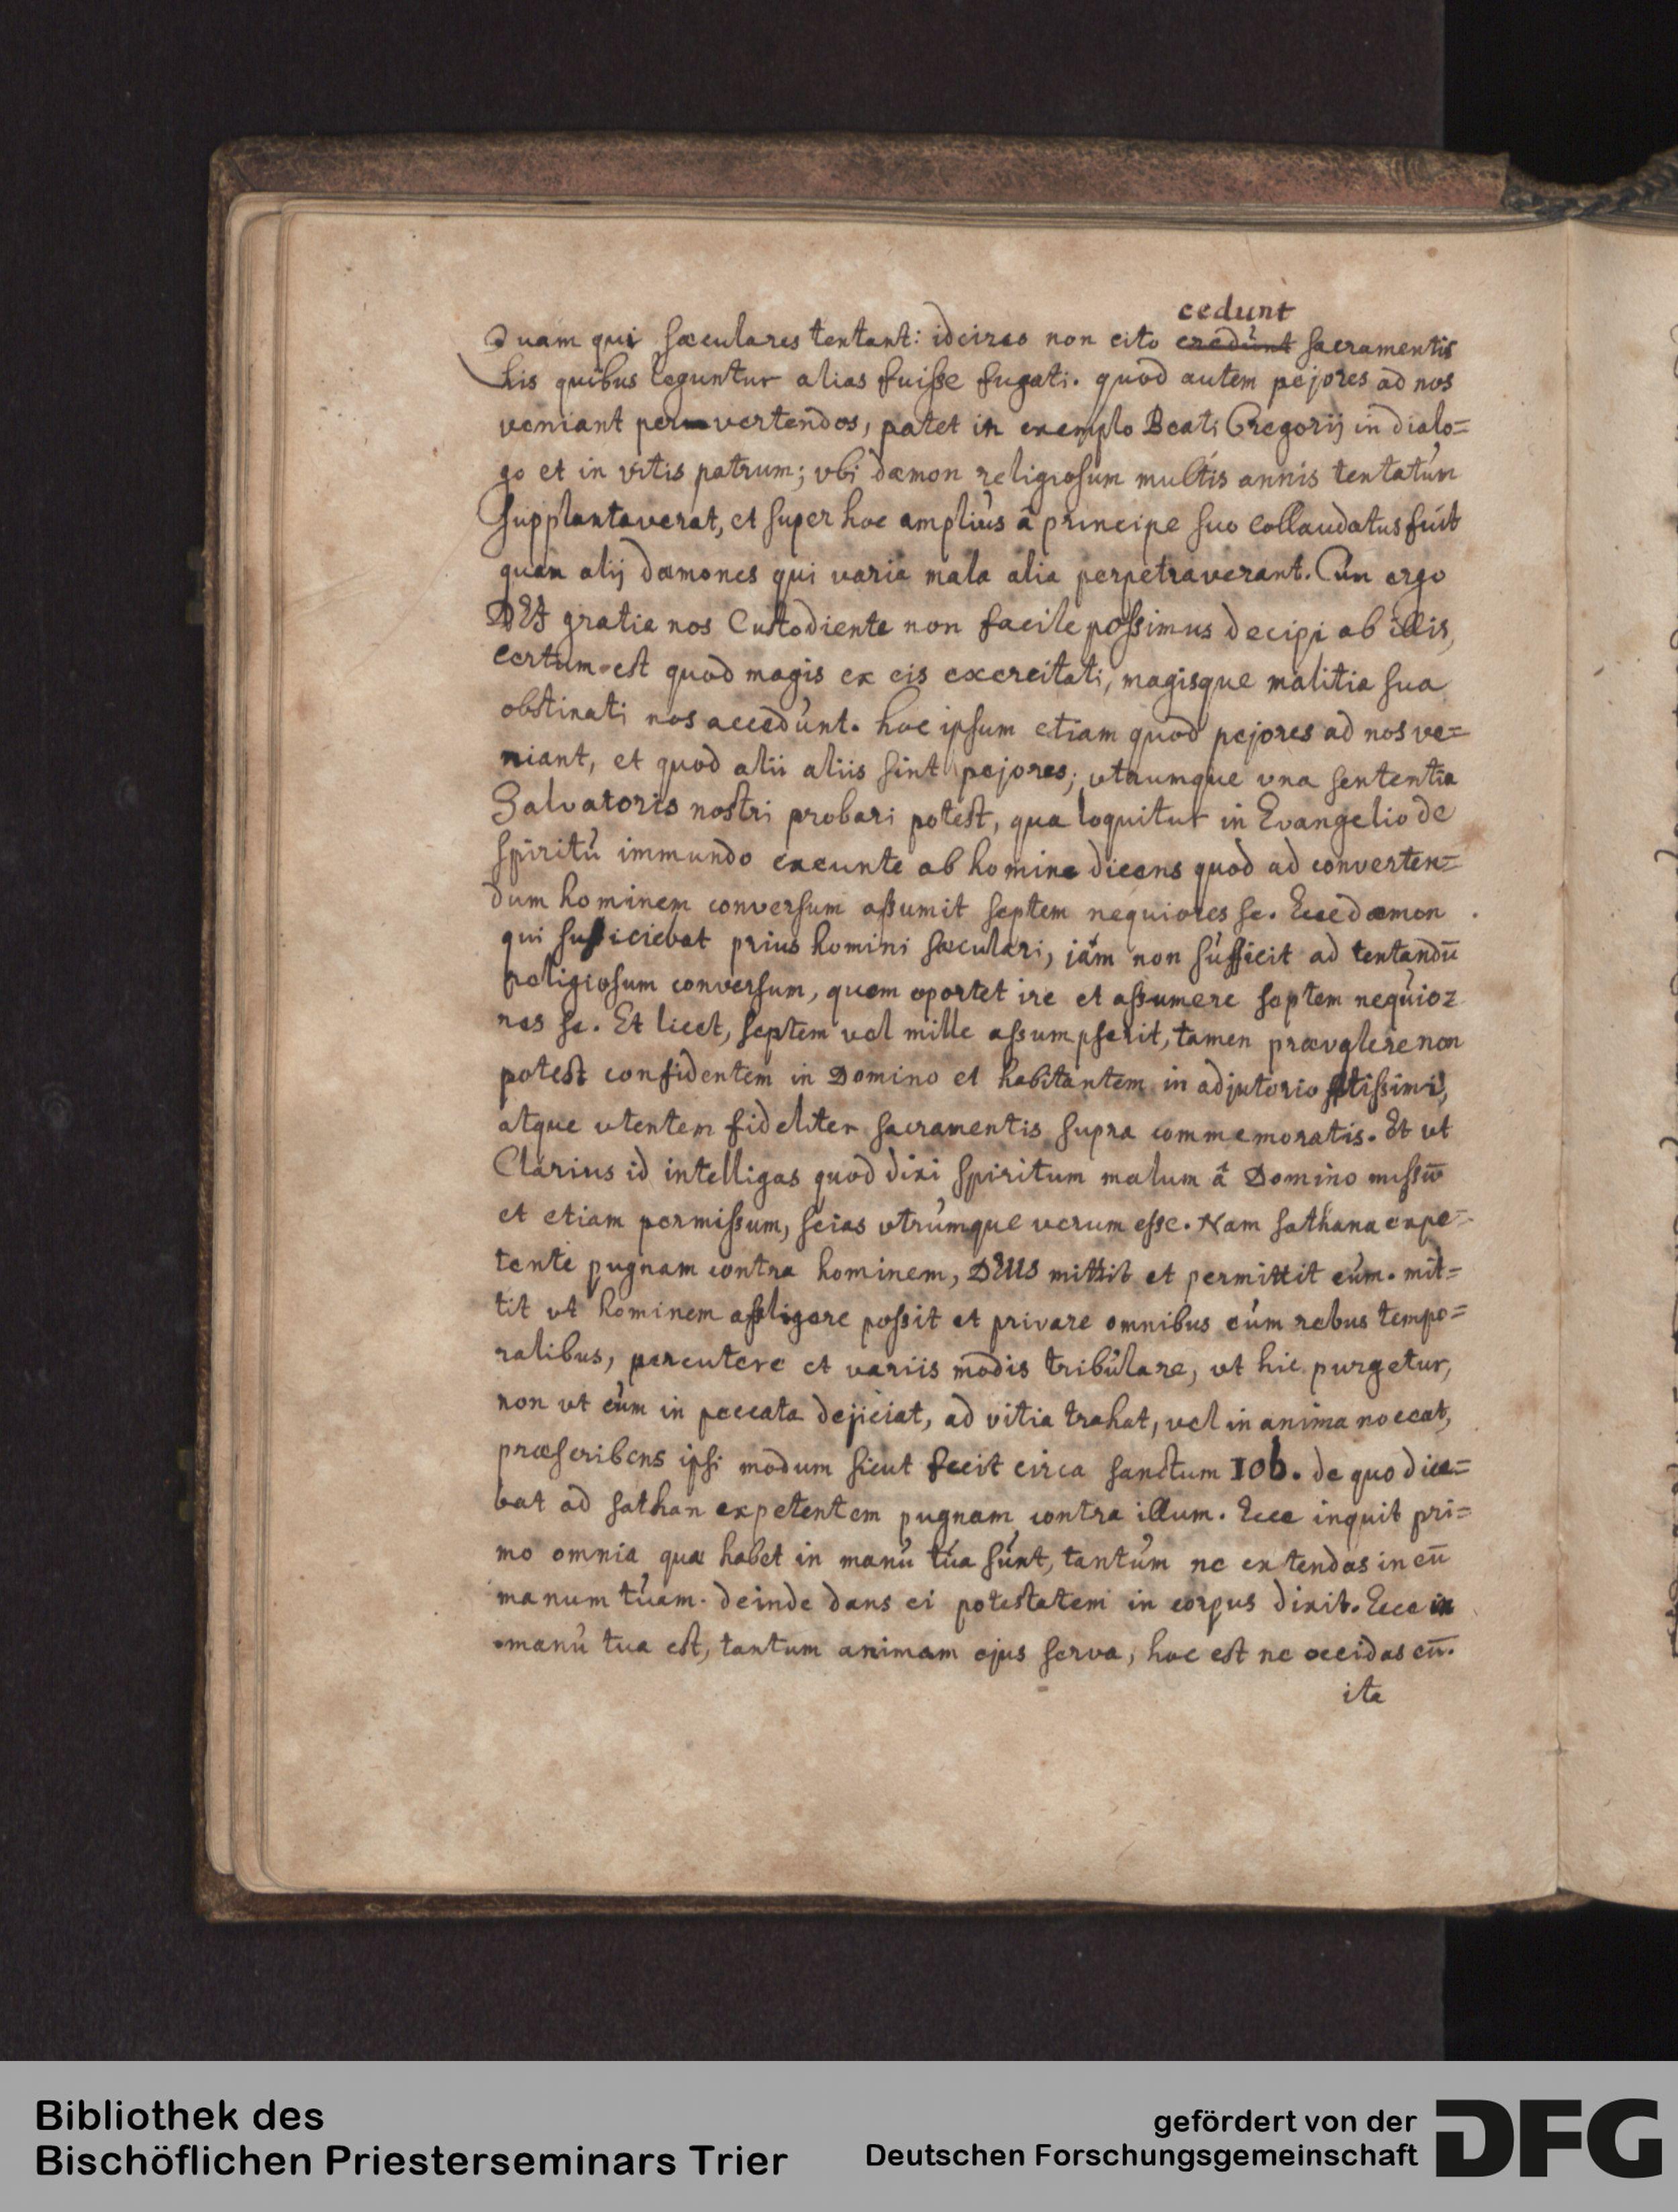 cedunt
Quam qui sæculares tentant: idcirco non cito credunt sacramentis
his quibus leguntur alias fuisse fugati. quod autem pejores ad nos
veniant pervertendos, patet in exemplo Beati Gregorij in dialo=
go et in vitis patrum; vbi dæmon religiosum multis annis tentatum
supplantaverat, et super hoc ampliùs â principe suo collaudatus fuit
quam alij dæmones qui varia mala alia perpetraverant. Cùm ergo
DEI gratia nos Custodiente non facile possimus decipi ab illis,
certum est quod magis ex eis exercitati, magisque malitia sua
obstinati nos accedùnt. hoc ipsum etiam quod pejores ad nos ve=
niant, et quod alii aliis sint pejores; vtrumque vna sententia
Salvatoris nostri probari potest, qua loquitur in Evangelio de
spiritù immundo exeunte ab homine dicens quod ad converten=
dum hominem conversum assumit septem nequiores se. Ecce dæmon
qui sufficiebat prius homini sæculari, jám non sùfficit ad tentandū
religiosum conversum, quem oportet ire et assumere septem nequio=
res se. Et licet, septem vel mille assumpserit, tamen prævalere non
potest confidentem in Domino et habitantem in adjutorio altissimi,
atque vtentem fideliter sacramentis supra commemoratis. Et vt
Clarius id intelligas quod dixi spiritum malum â Domino missū
et etiam permissum, scias vtrùmque verum esse. Nam sathana expe=
tente pugnam contra hominem, DEUS mittit et permittit eùm. mit=
tit vt hominem affligere possit et privare omnibus eùm rebus tempo=
ralibus, percutere et variis modis tribùlare, vt hic purgetur,
non vt eùm in peccata dejiciat, ad vitia trahat, vel in anima noceat,
præscribens ipsi modum sicut fecit circa sanctum IOb. de quo dice=
bat ad sathan expetentem pugnam contra illum. Ecce inquit pri=
mo omnia quæ habet in manù tùa sùnt, tantùm ne extendas in eū
manum tùam. deinde dans ei potestatem in corpus dixit. Ecce in
manù tua est, tantum animam ejus serva, hoc est ne occidas eū.
ita
Bibliothek des
Bischöflichen Priesterseminars Trier
gefördert von der
Deutschen Forschungsgemeinschaft
DFG